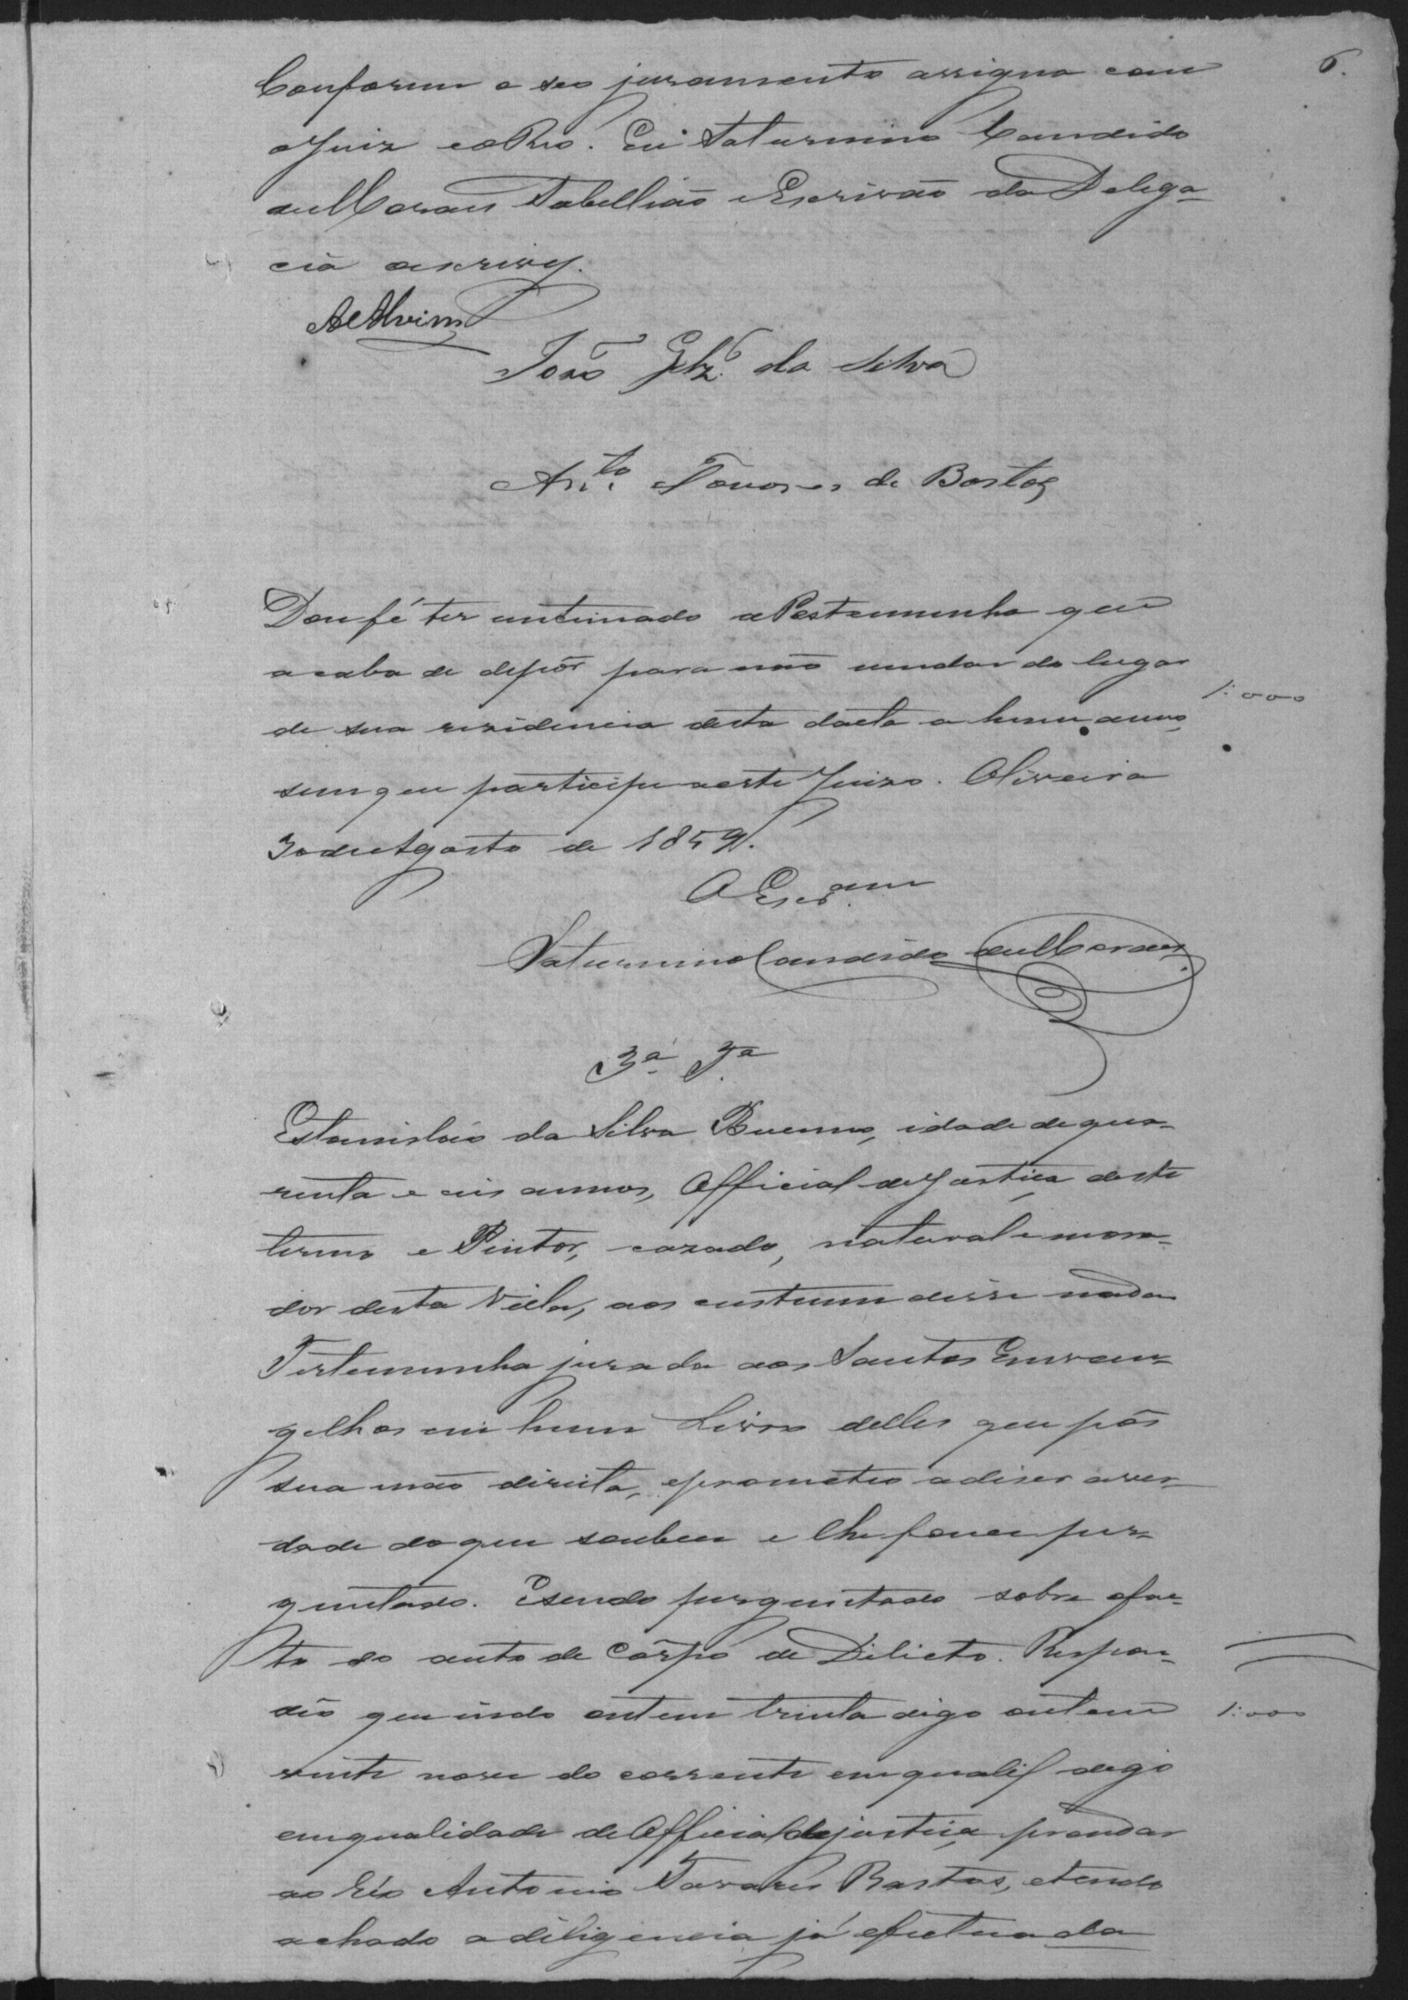 6.
Conforme o seo juramento assigna com
o Juiz e o Reo. Eu Saturnino Candido
de Moraes Tabellião e Escrivão da Delega-
cia o escrivy.
João Glz. da Silva
Anto. Tavares de Bastos
Dou fé ter intimado a Testemunha que
acaba de depôr para não mudar do lugar
de sua rezidencia desta dacta a hum anno,
1:000
sem que participe a este Juizo. Oliveira
30 de Agosto de 1859.
O Escram
Saturnino Candido de Moraes
3a. Ta.
Estanisláo da Silva Buenno, idade de qua-
renta e seis annos, Official de Justiça deste
termo e Pintor, cazado, natural e mora-
dor desta Villa, aos custume disse nada
Testemunha jurada aos Santos Envan-
gelhos em hum Livro delles que pôs
sua mão direita, e prometeo a diser a ver-
dade do que soubece e lhe foce per-
guntado. E sendo perguntado sobre o fac-
to do auto de Côrpo de Dilicto. Respon-
deo que indo ontem trinta digo ontem
1:000
vinte nove do corrente em qualif digo
em qualidade de Official de justiça prender
ao Réo Antonio Tavares Bastos, e tendo
achado a diligencia já efectuada